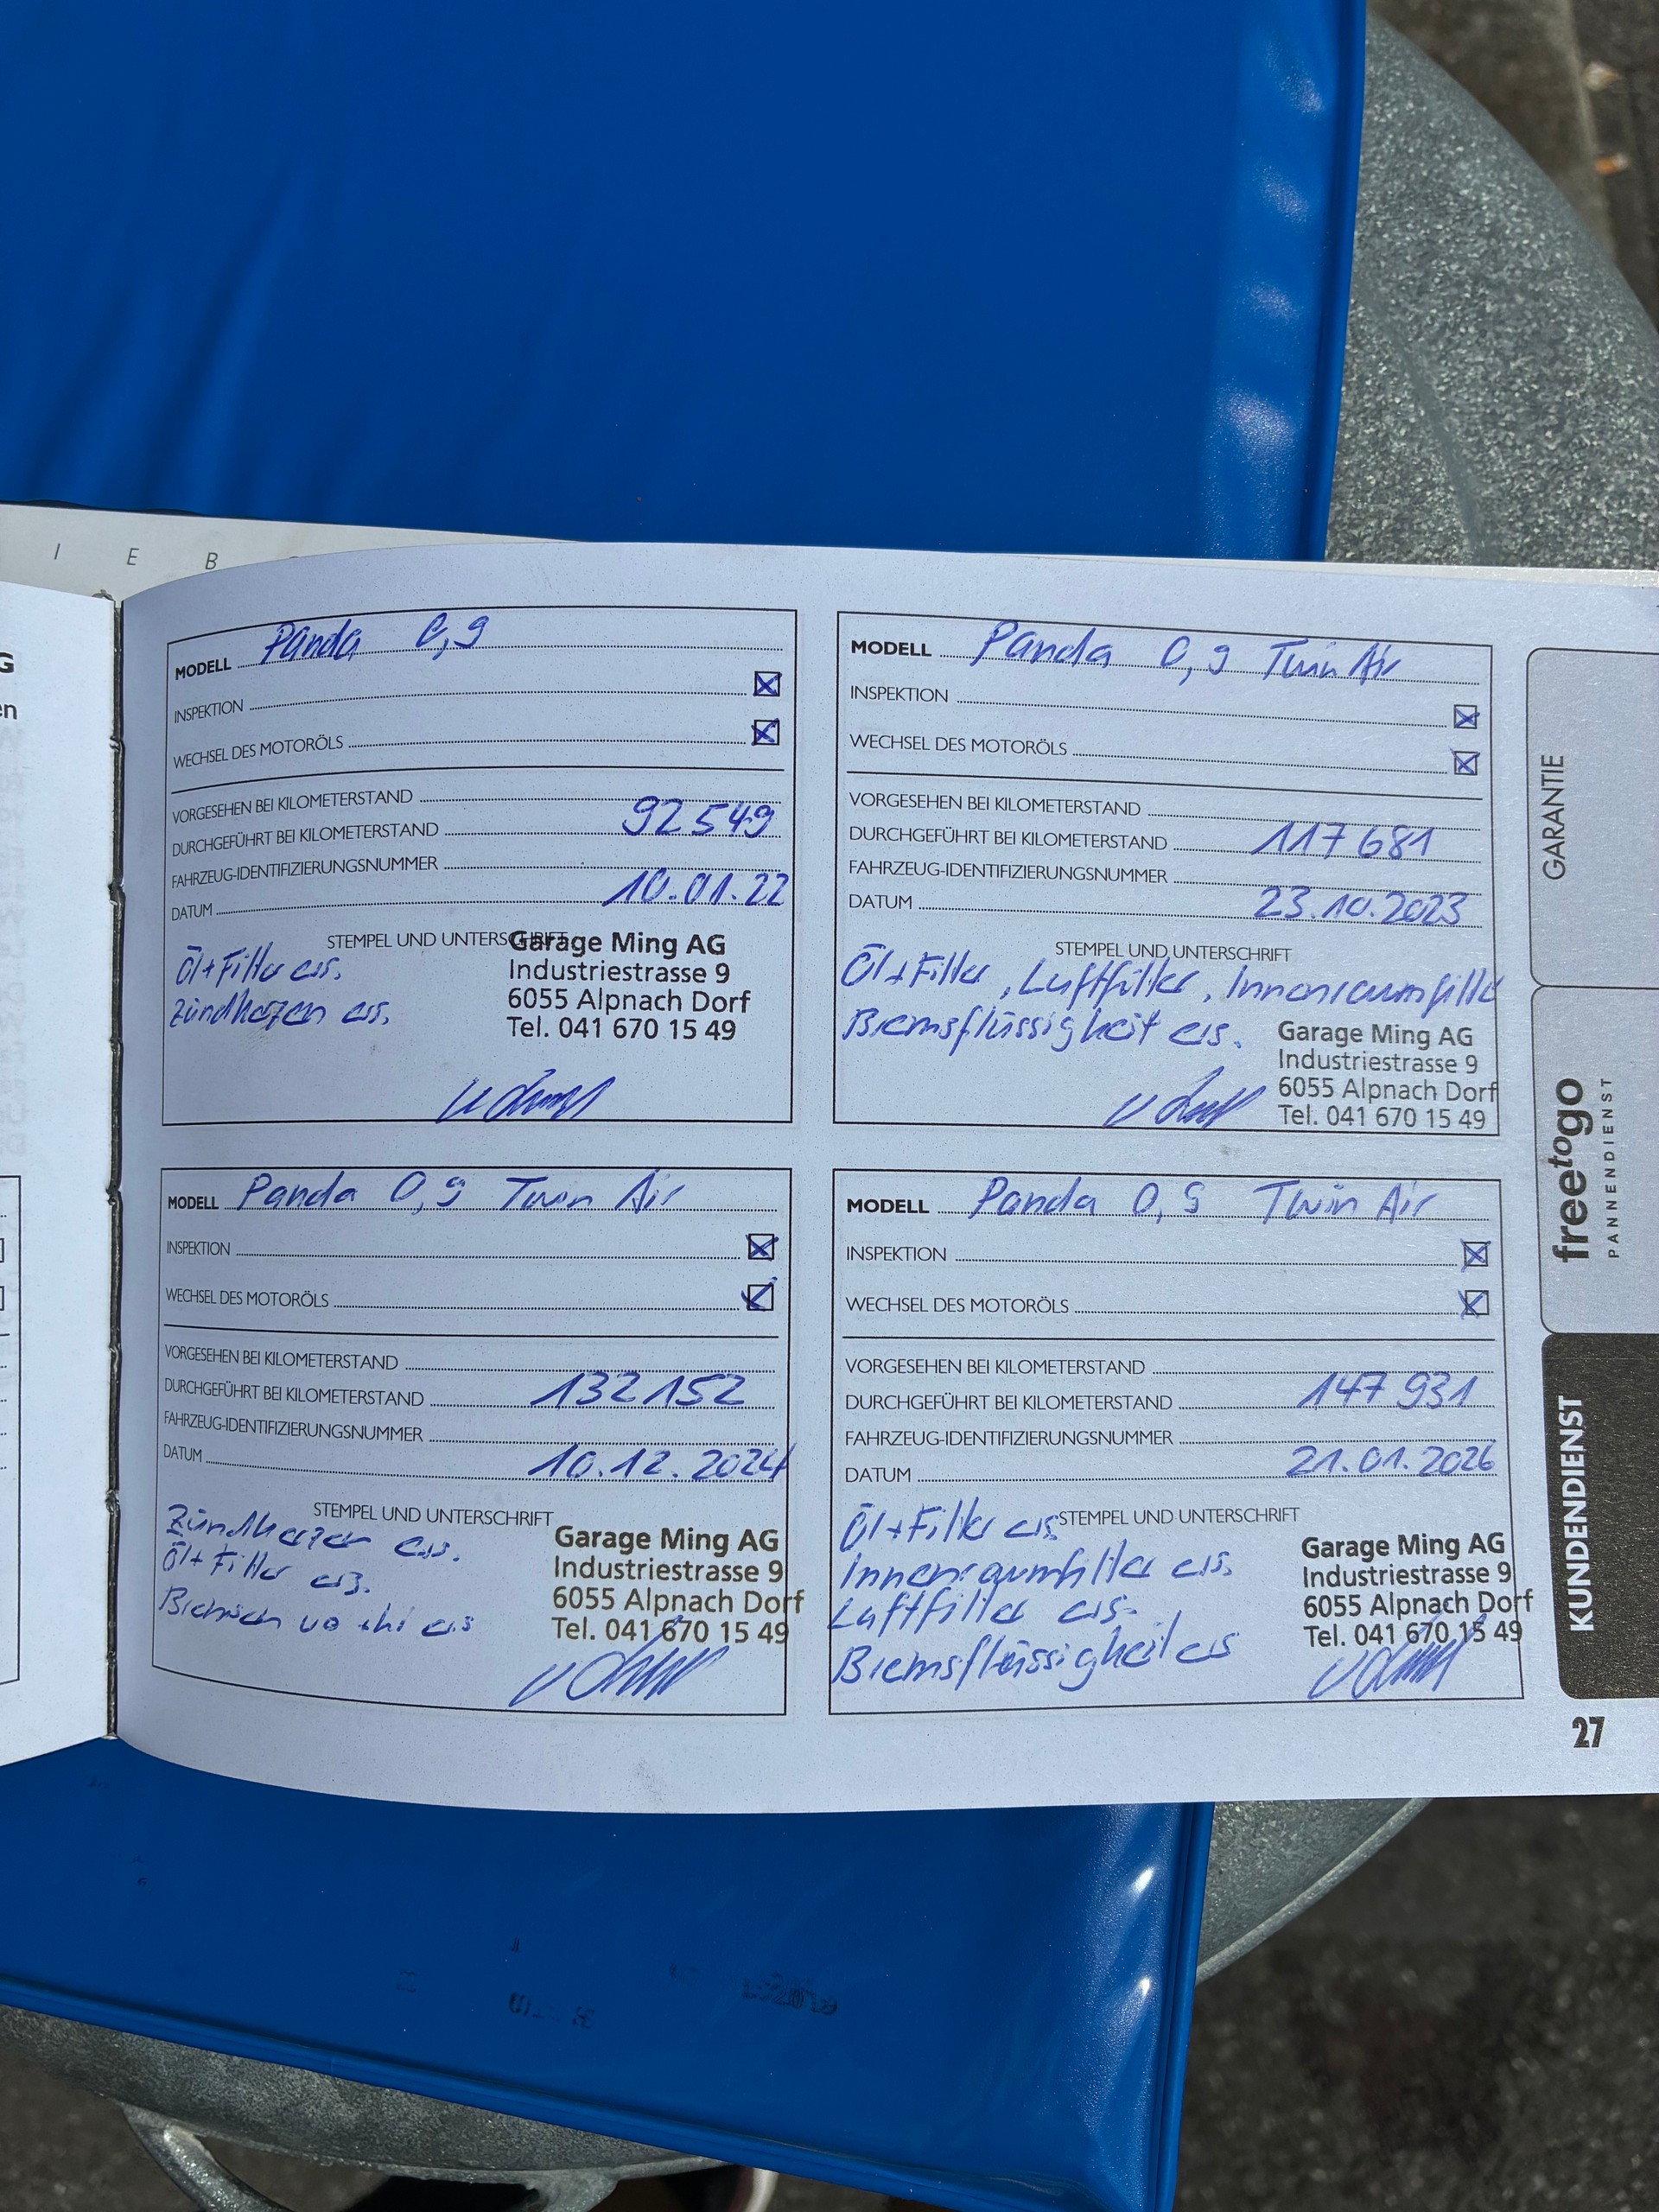 I E B
G
en
MODELL Panda 0,9
INSPEKTION
WECHSEL DES MOTORÖLS
VORGESEHEN BEI KILOMETERSTAND
DURCHGEFÜHRT BEI KILOMETERSTAND 92 549
FAHRZEUG-IDENTIFIZIERUNGSNUMMER
DATUM 10.01.22
STEMPEL UND UNTERSCHRIFT
Öl + Filter ers.
Zündkerzen ers.
Garage Ming AG
Industriestrasse 9
6055 Alpnach Dorf
Tel. 041 670 15 49
MODELL Panda 0,9 Twin Air
INSPEKTION
WECHSEL DES MOTORÖLS
VORGESEHEN BEI KILOMETERSTAND
DURCHGEFÜHRT BEI KILOMETERSTAND 117 681
FAHRZEUG-IDENTIFIZIERUNGSNUMMER
DATUM 23.10.2023
STEMPEL UND UNTERSCHRIFT
Öl + Filter, Luftfilter, Innenraumfilter
Bremsflüssigkeit ers.
Garage Ming AG
Industriestrasse 9
6055 Alpnach Dorf
Tel. 041 670 15 49
MODELL Panda 0,9 Twin Air
INSPEKTION
WECHSEL DES MOTORÖLS
VORGESEHEN BEI KILOMETERSTAND
DURCHGEFÜHRT BEI KILOMETERSTAND 132 152
FAHRZEUG-IDENTIFIZIERUNGSNUMMER
DATUM 10.12.2024
STEMPEL UND UNTERSCHRIFT
Zündkerzen ers.
Öl + Filter ers.
Bremsen vo + hi ers
Garage Ming AG
Industriestrasse 9
6055 Alpnach Dorf
Tel. 041 670 15 49
MODELL Panda 0,9 Twin Air
INSPEKTION
WECHSEL DES MOTORÖLS
VORGESEHEN BEI KILOMETERSTAND
DURCHGEFÜHRT BEI KILOMETERSTAND 147 931
FAHRZEUG-IDENTIFIZIERUNGSNUMMER
DATUM 21.01.2026
STEMPEL UND UNTERSCHRIFT
Öl + Filter ers
Innenraumfilter ers.
Luftfilter ers.
Bremsflüssigkeit ers
Garage Ming AG
Industriestrasse 9
6055 Alpnach Dorf
Tel. 041 670 15 49
GARANTIE
freetogo
PANNENDIENST
KUNDENDIENST
27